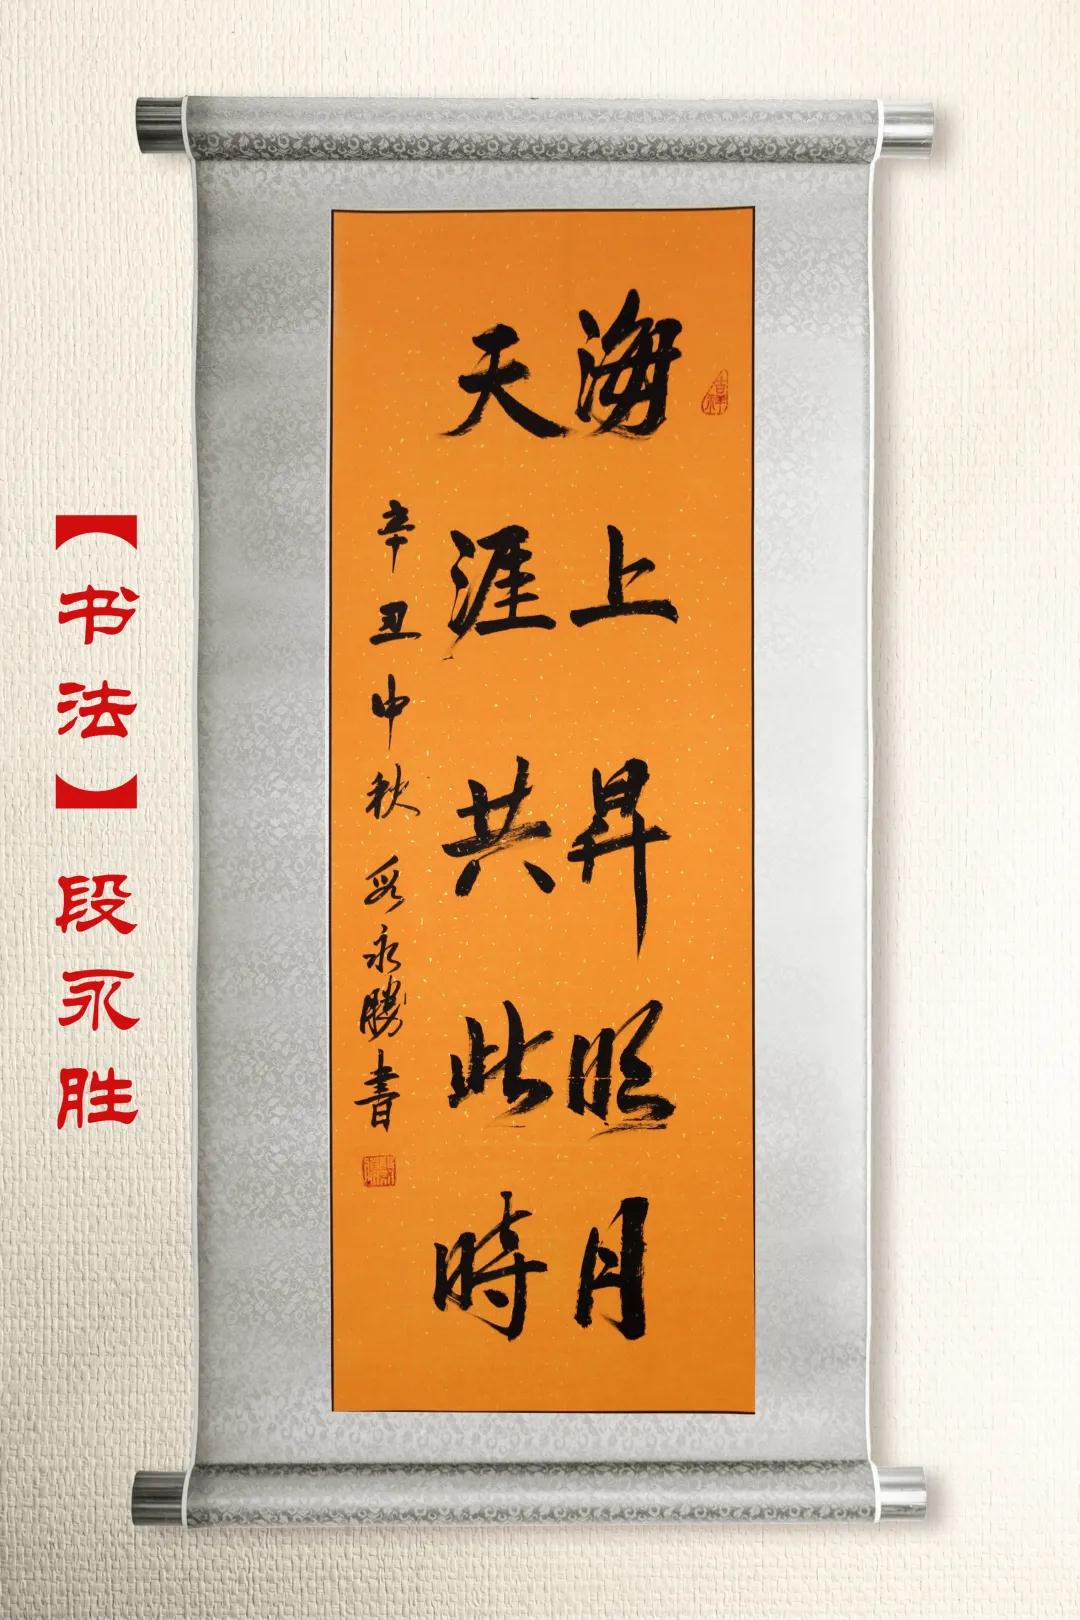 海上昇明月
天涯共此時
辛丑中秋段永勝書
吉祥
【书法】段永胜